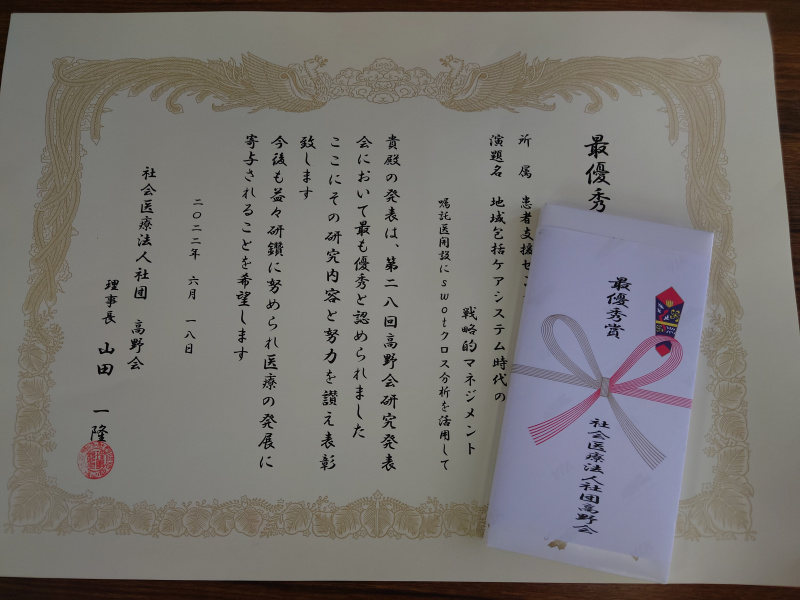 最優秀
所属 患者支援セン
演題名 地域包括ケアシステム時代の
戦略的マネジメント
嘱託医開設にswotクロス分析を活用して
貴殿の発表は、第二八回高野会研究発表
会において最も優秀と認められました
ここにその研究内容と努力を讃え表彰
致します
今後も益々研鑽に努められ医療の発展に
寄与されることを希望します
二〇二二年 六月 一八日
社会医療法人社団 高野会
理事長 山田 一隆
最優秀賞
社会医療法人社団高野会